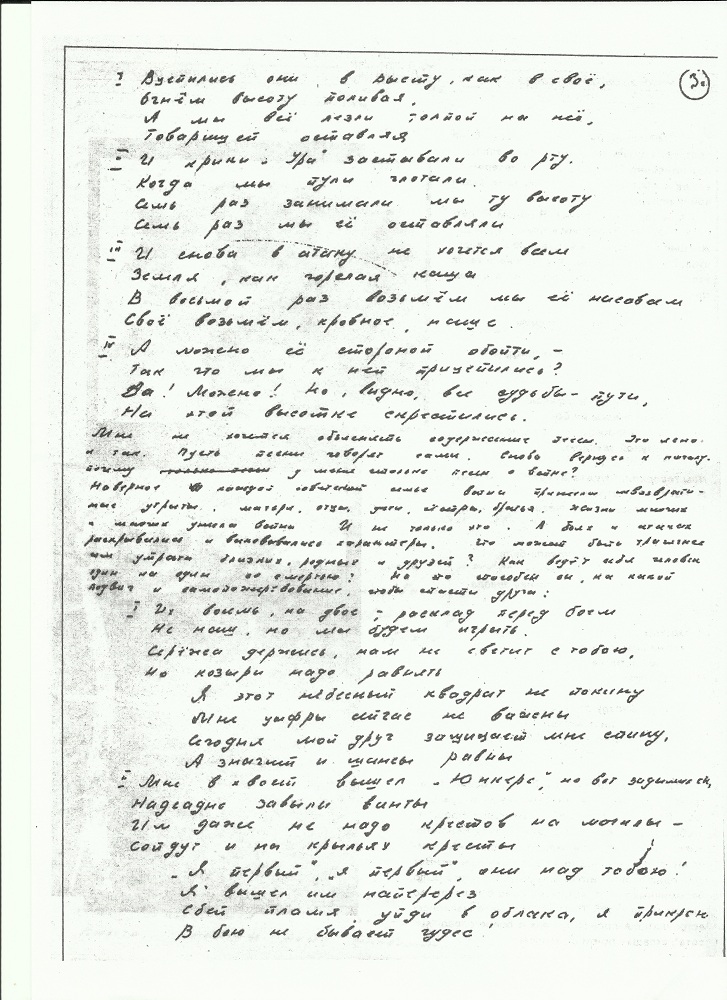 3
I Вцепились они в высоту, как в своё,
Огнём высоту поливая,
А мы всё лезли толпой на неё,
Товарищей оставляя
II И крики „Ура" застывали во рту.
Когда мы пули глотали.
Семь раз занимали мы ту высоту
Семь раз мы её оставляли
III И снова в атаку не хочется всем
Земля, как горелая каша
В восьмой раз возьмём мы её насовсем
Своё возьмём, кровное, наше.
IV А можно её стороной обойти, –
Так что мы к ней прицепились?
Да! Можно! Но, видно, все судьбы-пути,
На этой высотке скрестились.
Мне не хочется объяснять содержание песен. Это ясно
и так. Пусть песни говорят сами. Снова вернусь к началу.
почему у меня столько песен о войне?
Наверное каждой советской семье война принесла невозврати-
мые утраты. матери, отцы, дети, сёстры, братья. Жизни многих
и многих унесла война И не только это. А боях и атаках
раскрывались и выковывались характеры. Что может быть трагичнее
чем утрата близких, родных и друзей? Как ведёт себя человек
один на один со смертью? На что способен он, на какой
подвиг и самопожертвование, чтобы спасти друга:
I Их восемь, нас двое – расклад перед боем
Не наш, но мы будем играть.
Серёжа держись, нам не светит с тобою,
Но козыри надо равнять
Я этот небесный квадрат не покину
Мне цифры сейчас не важны
Сегодня мой друг защищает мне спину,
А значит и шансы равны
II Мне в хвост вышел „Юнкерс", но вот задымил он,
Надсадно завыли винты
Им даже не надо крестов на могилы –
Сойдут и на крыльях кресты
„Я первый", „я первый", они над тобою!
Я вышел им наперерез
Сбей пламя, уйди в облака, я прикрою
В бою не бывает чудес!